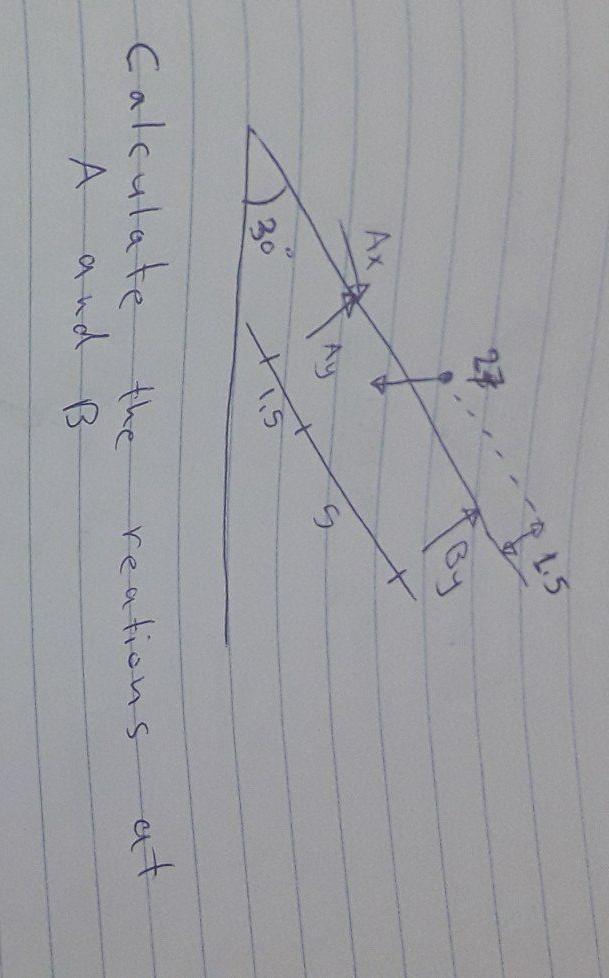 27
1.5
Ax
Ay
By
30°
1.5
5
Calculate the reations at
A and B